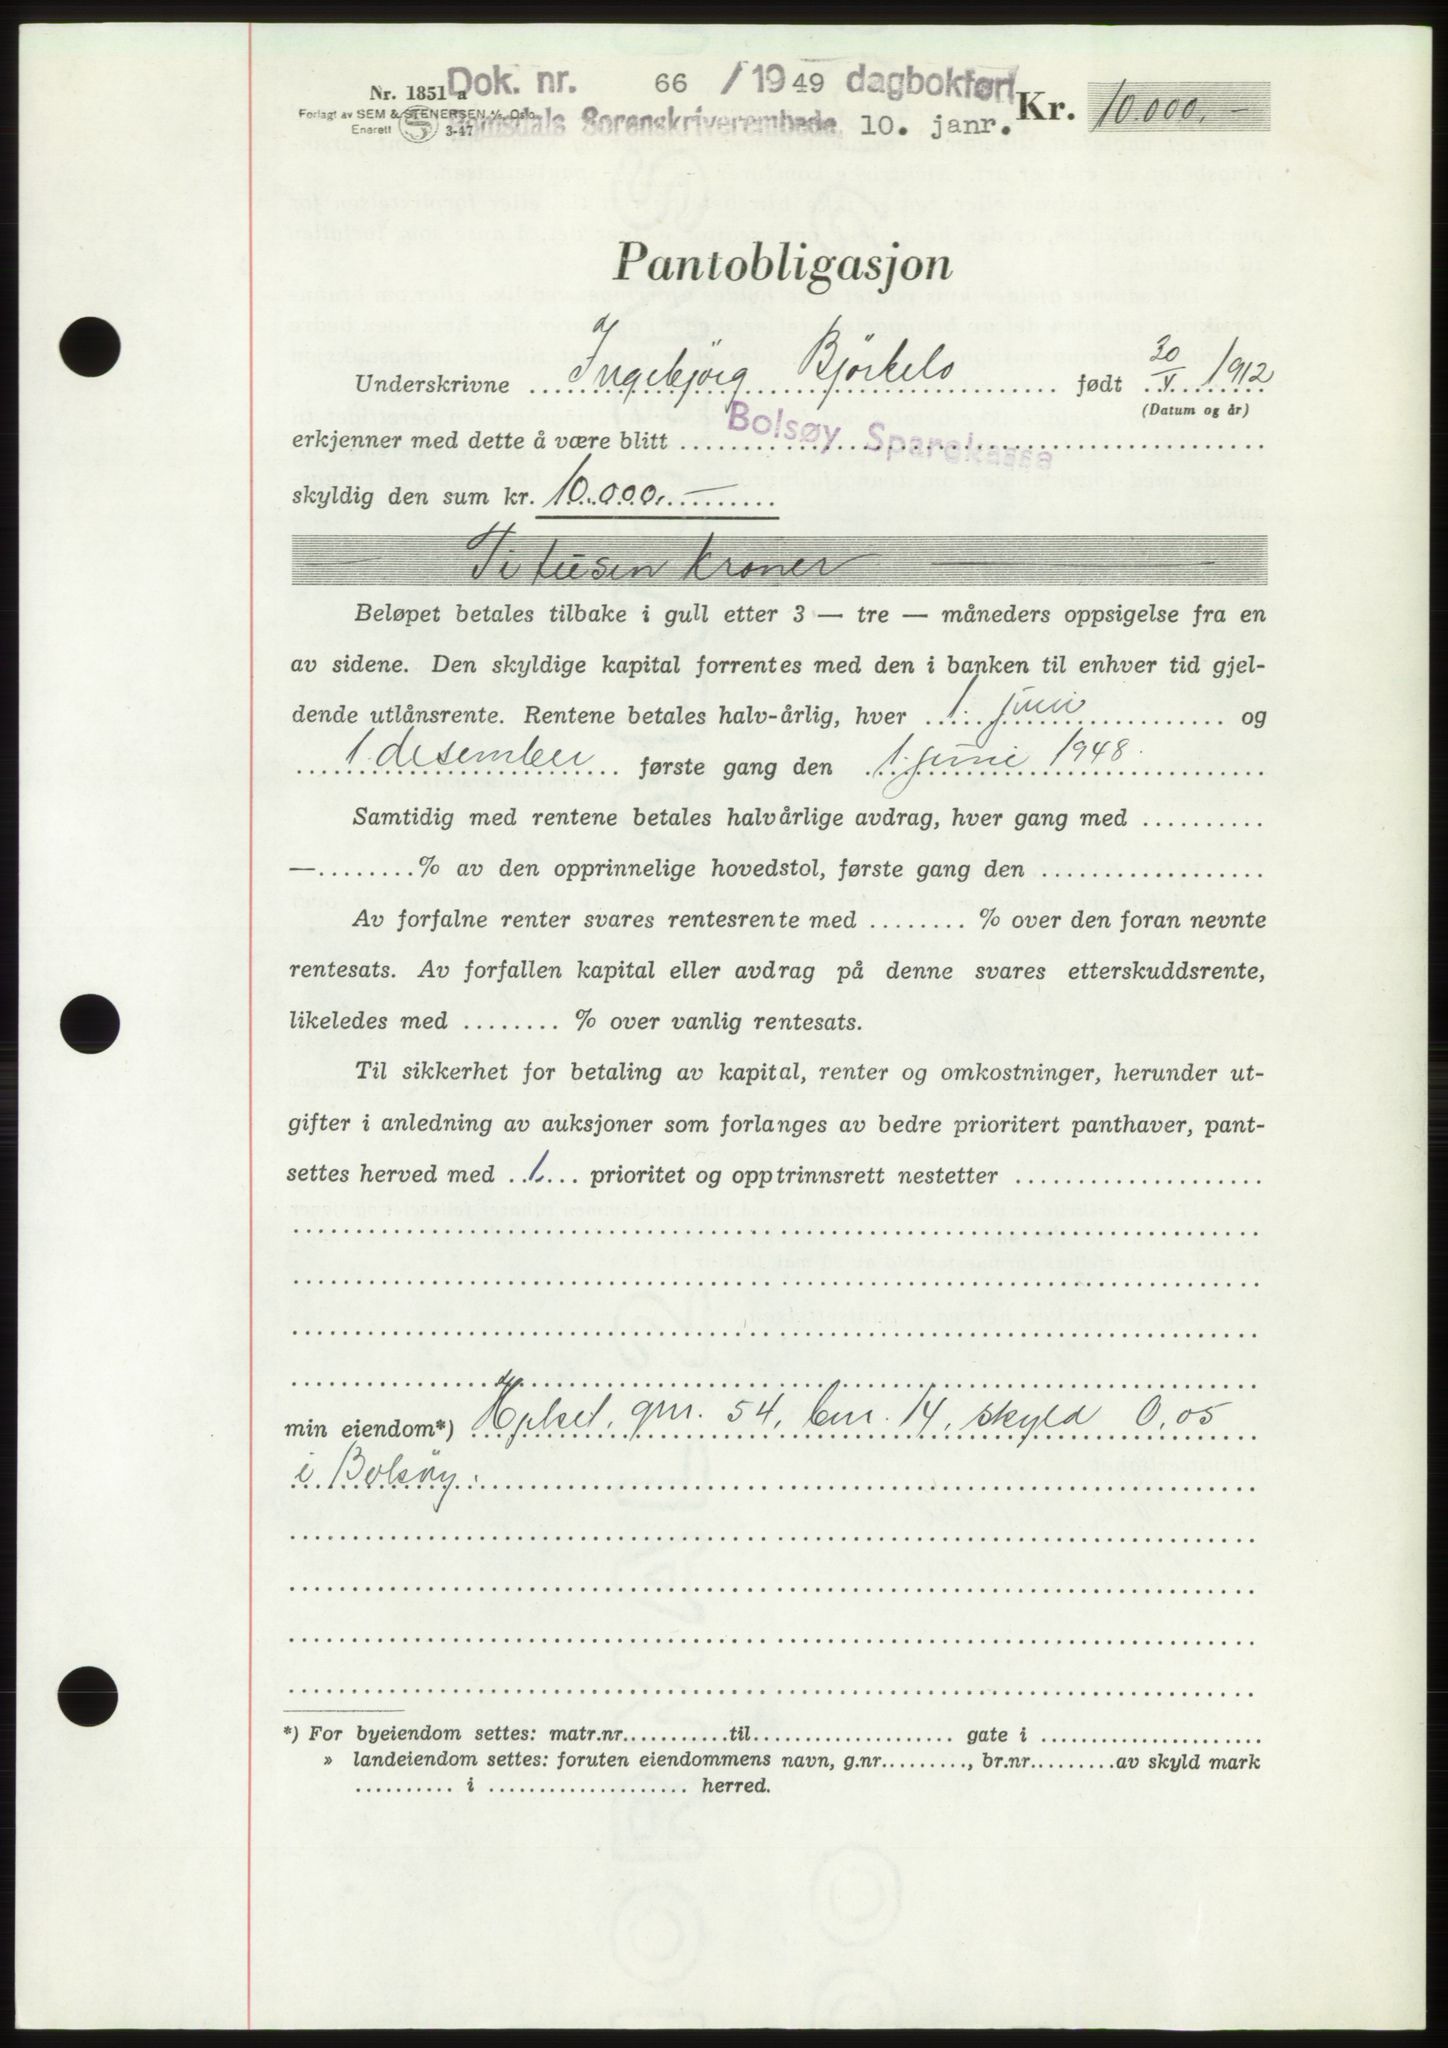 Nr. 1851 a Dok. nr. 66 / 1949 dagbokført
Forlagt av SEM & STENERSEN A/S, Oslo
Romsdals Sorenskriverembede 10. janr. Kr. 10.000.-
Enerett S 3-47
Pantobligasjon
Underskrivne Ingebjörg Björkelo født 30/V 1912
(Datum og år)
erkjenner med dette å være blitt Bolsøy Sparekasse
skyldig den sum kr. 10.000.—
— Ti tusen kroner —
Beløpet betales tilbake i gull etter 3 — tre — måneders oppsigelse fra en
av sidene. Den skyldige kapital forrentes med den i banken til enhver tid gjel-
dende utlånsrente. Rentene betales halv-årlig, hver 1. juni og
1. desember første gang den 1. juni 1948.
Samtidig med rentene betales halvårlige avdrag, hver gang med ..........
—........% av den opprinnelige hovedstol, første gang den ..................
Av forfalne renter svares rentesrente med ........ % over den foran nevnte
rentesats. Av forfallen kapital eller avdrag på denne svares etterskuddsrente,
likeledes med ........ % over vanlig rentesats.
Til sikkerhet for betaling av kapital, renter og omkostninger, herunder ut-
gifter i anledning av auksjoner som forlanges av bedre prioritert panthaver, pant-
settes herved med 1. prioritet og opptrinnsrett nestetter ....................
min eiendom*) gnr. 54, bnr. 14, skyld 0,05
i Bolsøy.
*) For byeiendom settes: matr.nr...........til.................... gate i ......................
» landeiendom settes: foruten eiendommens navn, g.nr........., br.nr.........av skyld mark
.......... i .................... herred.